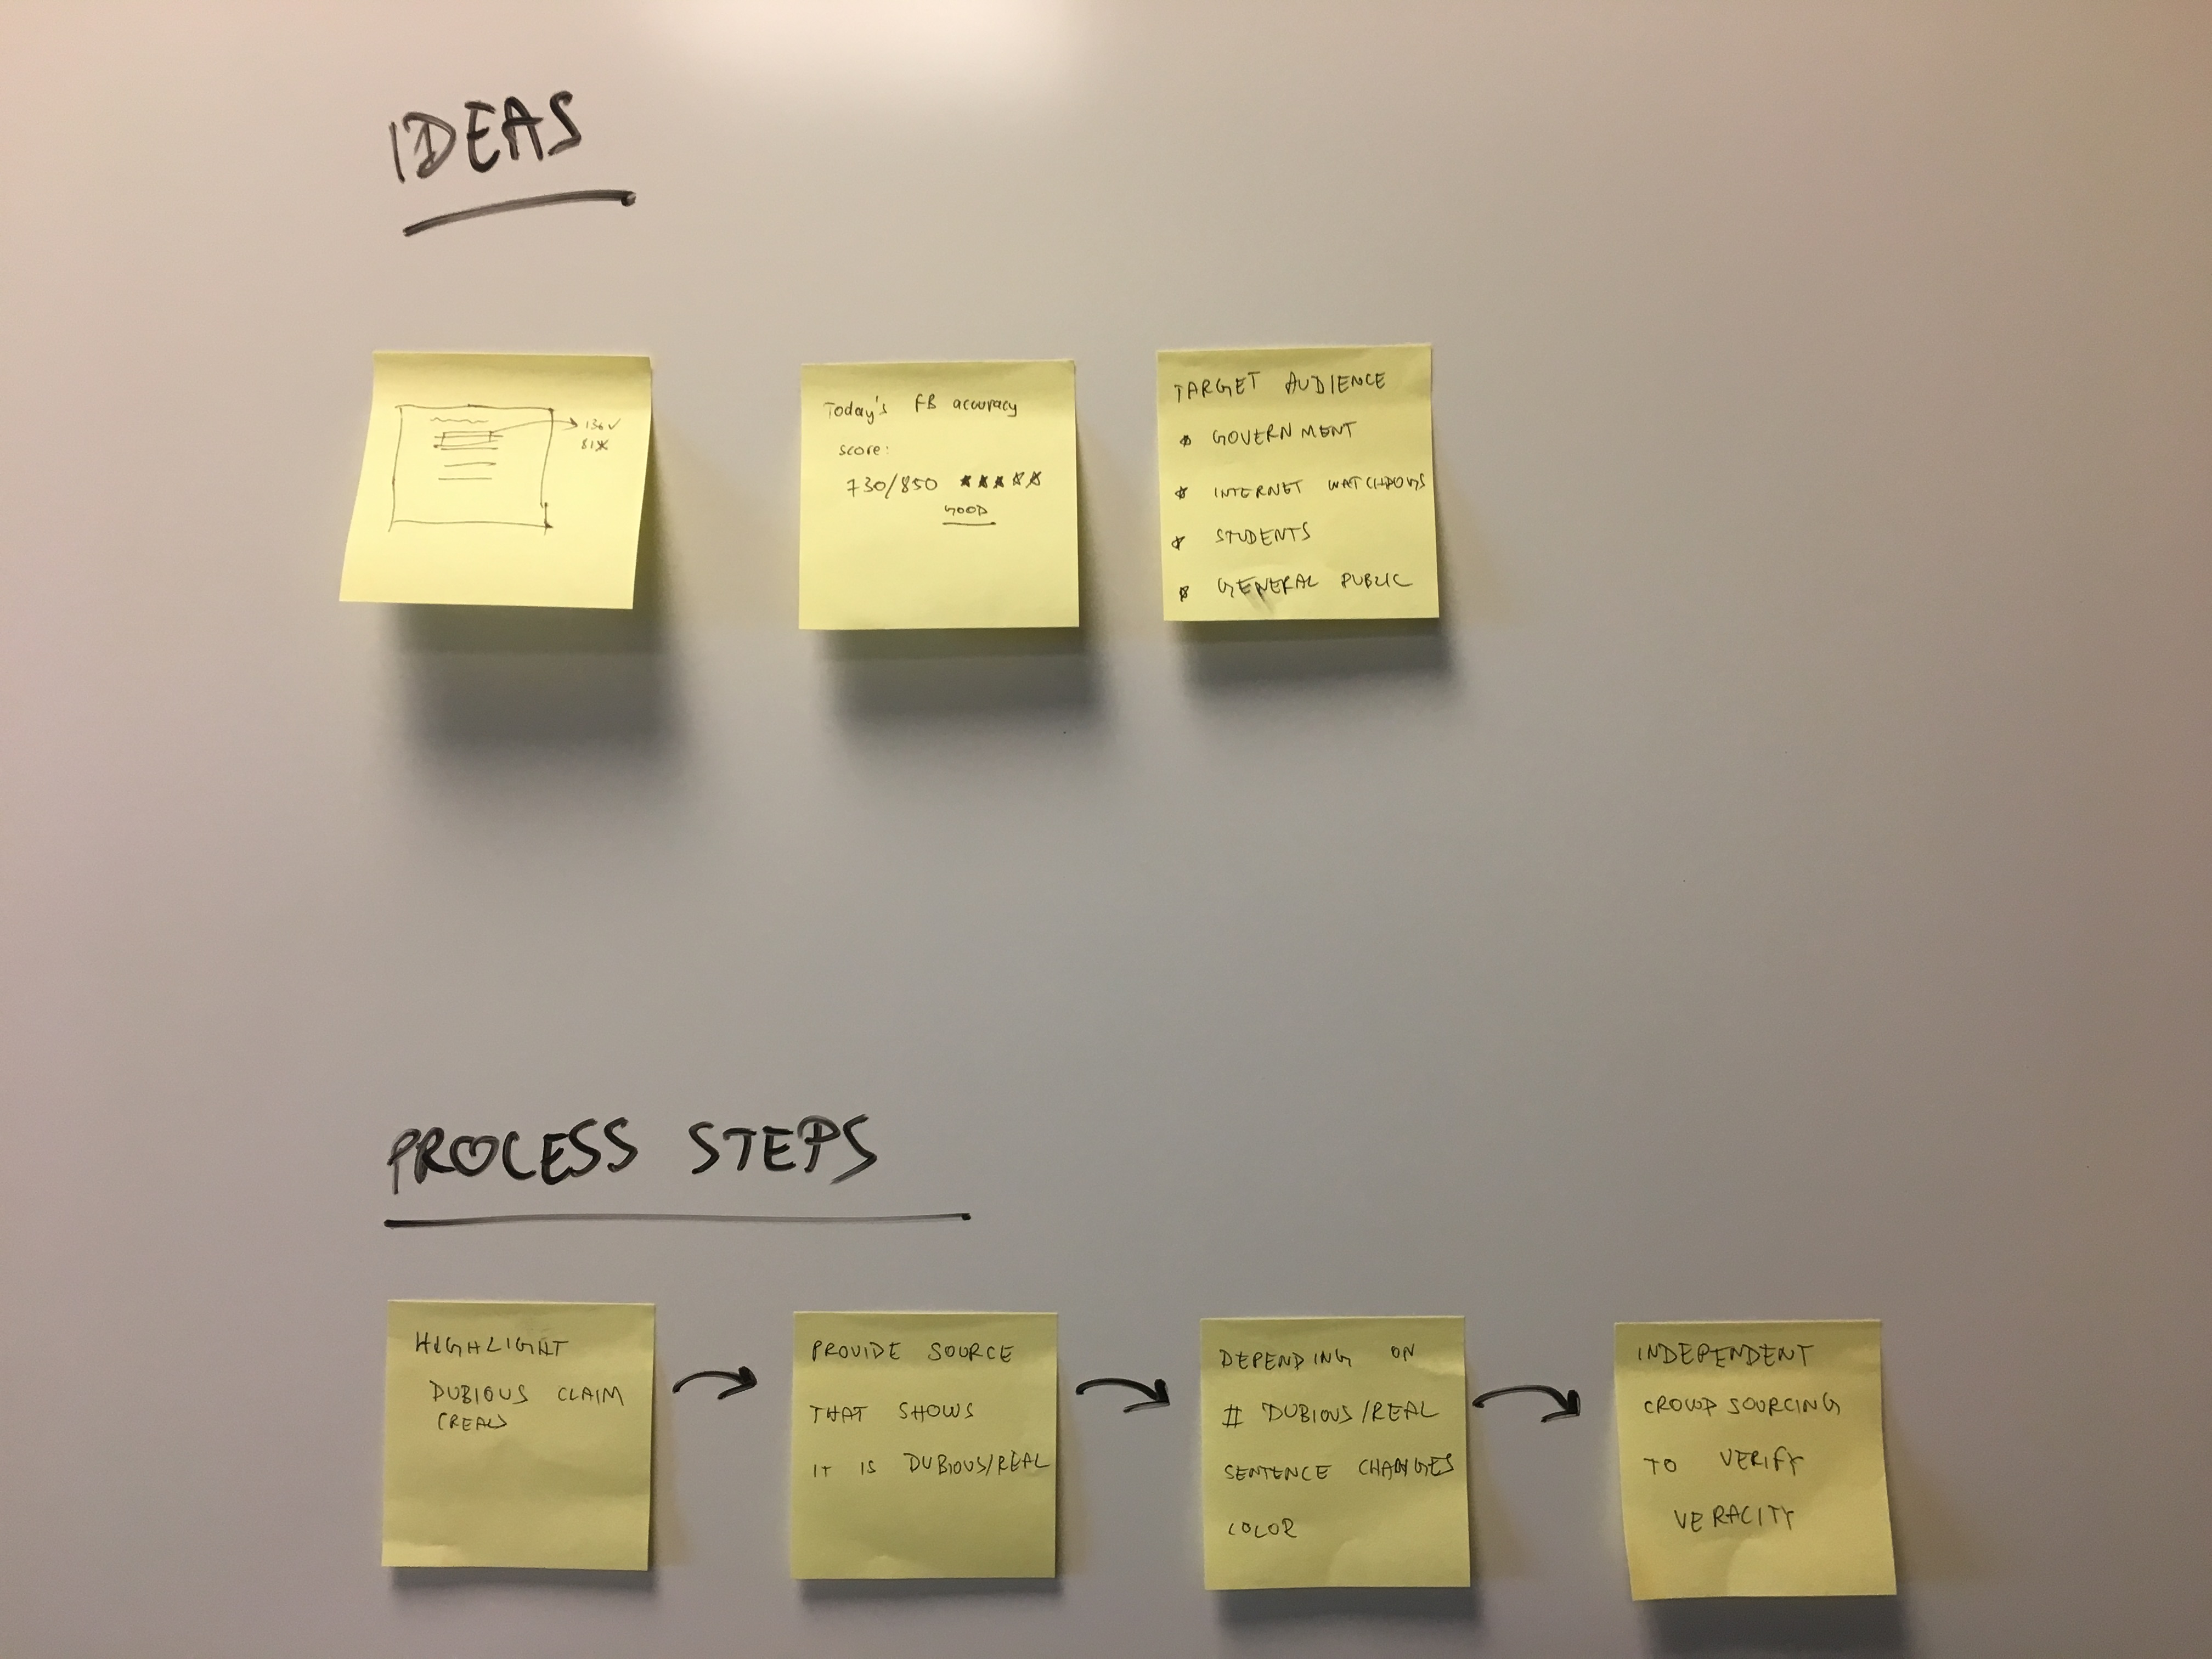 IDEAS
136 ✓
81 x
Today's FB accuracy
score:
730/850 ★★★☆☆
GOOD
TARGET AUDIENCE
* GOVERNMENT
* INTERNET WATCHDOGS
* STUDENTS
* GENERAL PUBLIC
PROCESS STEPS
HIGHLIGHT
DUBIOUS CLAIM
PROVIDE SOURCE
THAT SHOWS
IT IS DUBIOUS/REAL
DEPENDING ON
# DUBIOUS/REAL
SENTENCE CHANGES
COLOR
INDEPENDENT
CROWDSOURCING
TO VERIFY
VERACITY